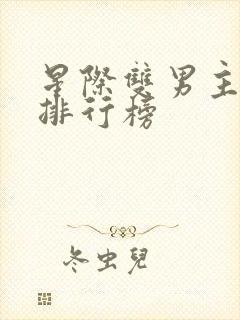 星際雙男主
排行榜
冬虫兒